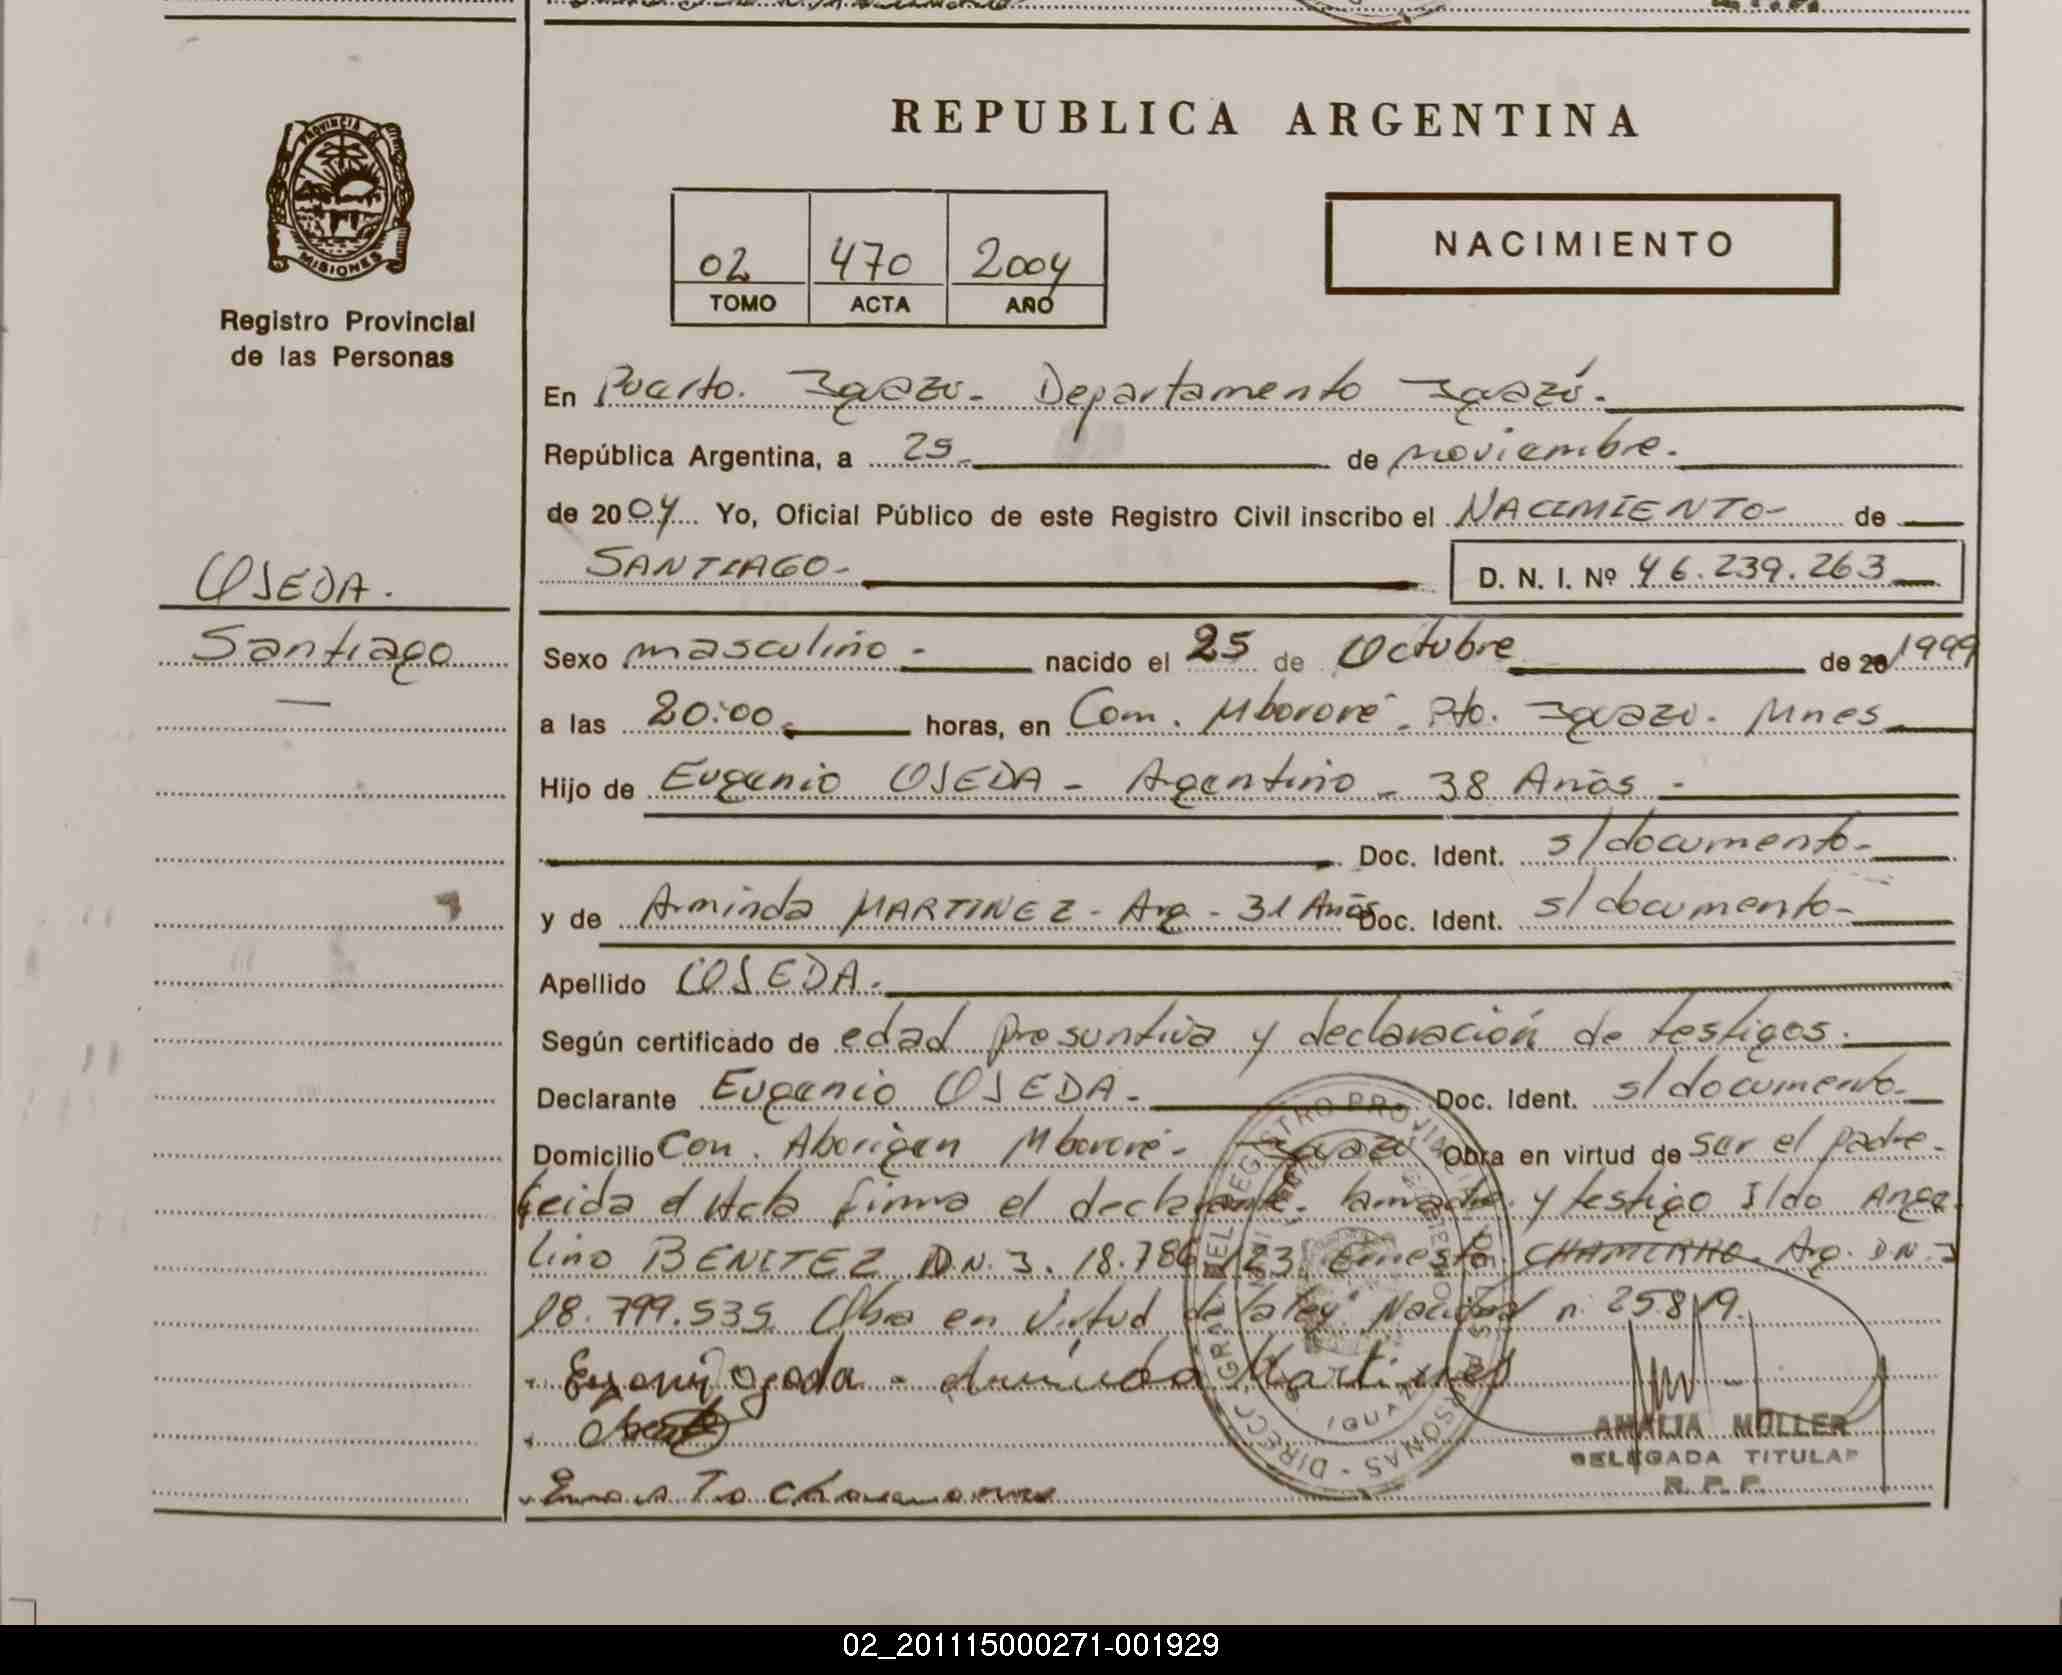 REPUBLICA ARGENTINA
PROVINCIA DE
MISIONES
Registro Provincial
de las Personas
02 470 2004
TOMO ACTA AÑO
NACIMIENTO
En Puerto. Iguazú- Departamento Iguazú.
República Argentina, a 25 de noviembre.
de 2004 Yo, Oficial Público de este Registro Civil inscribo el NACIMIENTO- de
SANTIAGO- D. N. I. Nº 46.239.263
OJEDA.
Santiago
Sexo masculino - nacido el 25 de Octubre de 20 1999
a las 20:00 horas, en Com. Mbororé- Pto. Iguazú. Mnes
Hijo de Eugenio OJEDA - Argentino - 38 Años -
Doc. Ident. s/documento-
y de Arminda MARTINEZ - Arg - 31 Años Doc. Ident. s/documento-
Apellido OJEDA.
Según certificado de edad presuntiva y declaración de testigos.
Declarante Eugenio OJEDA- Doc. Ident. s/documento-
Domicilio Com. Aborigen Mbororé- Iguazú Obra en virtud de ser el padre-
Leida el Acta firma el declarante. la madre y testigo Ildo Ange-
lino BENITEZ D.N.I. 18.786.123 Ernesto CHAMORRO. Arg. D.N.I
18.799.535 Obra en virtud de la ley Nacional n: 25819.
Arminda Martinez
AMALIA MULLER
DELEGADA TITULAR
R. P. P.
02_201115000271-001929